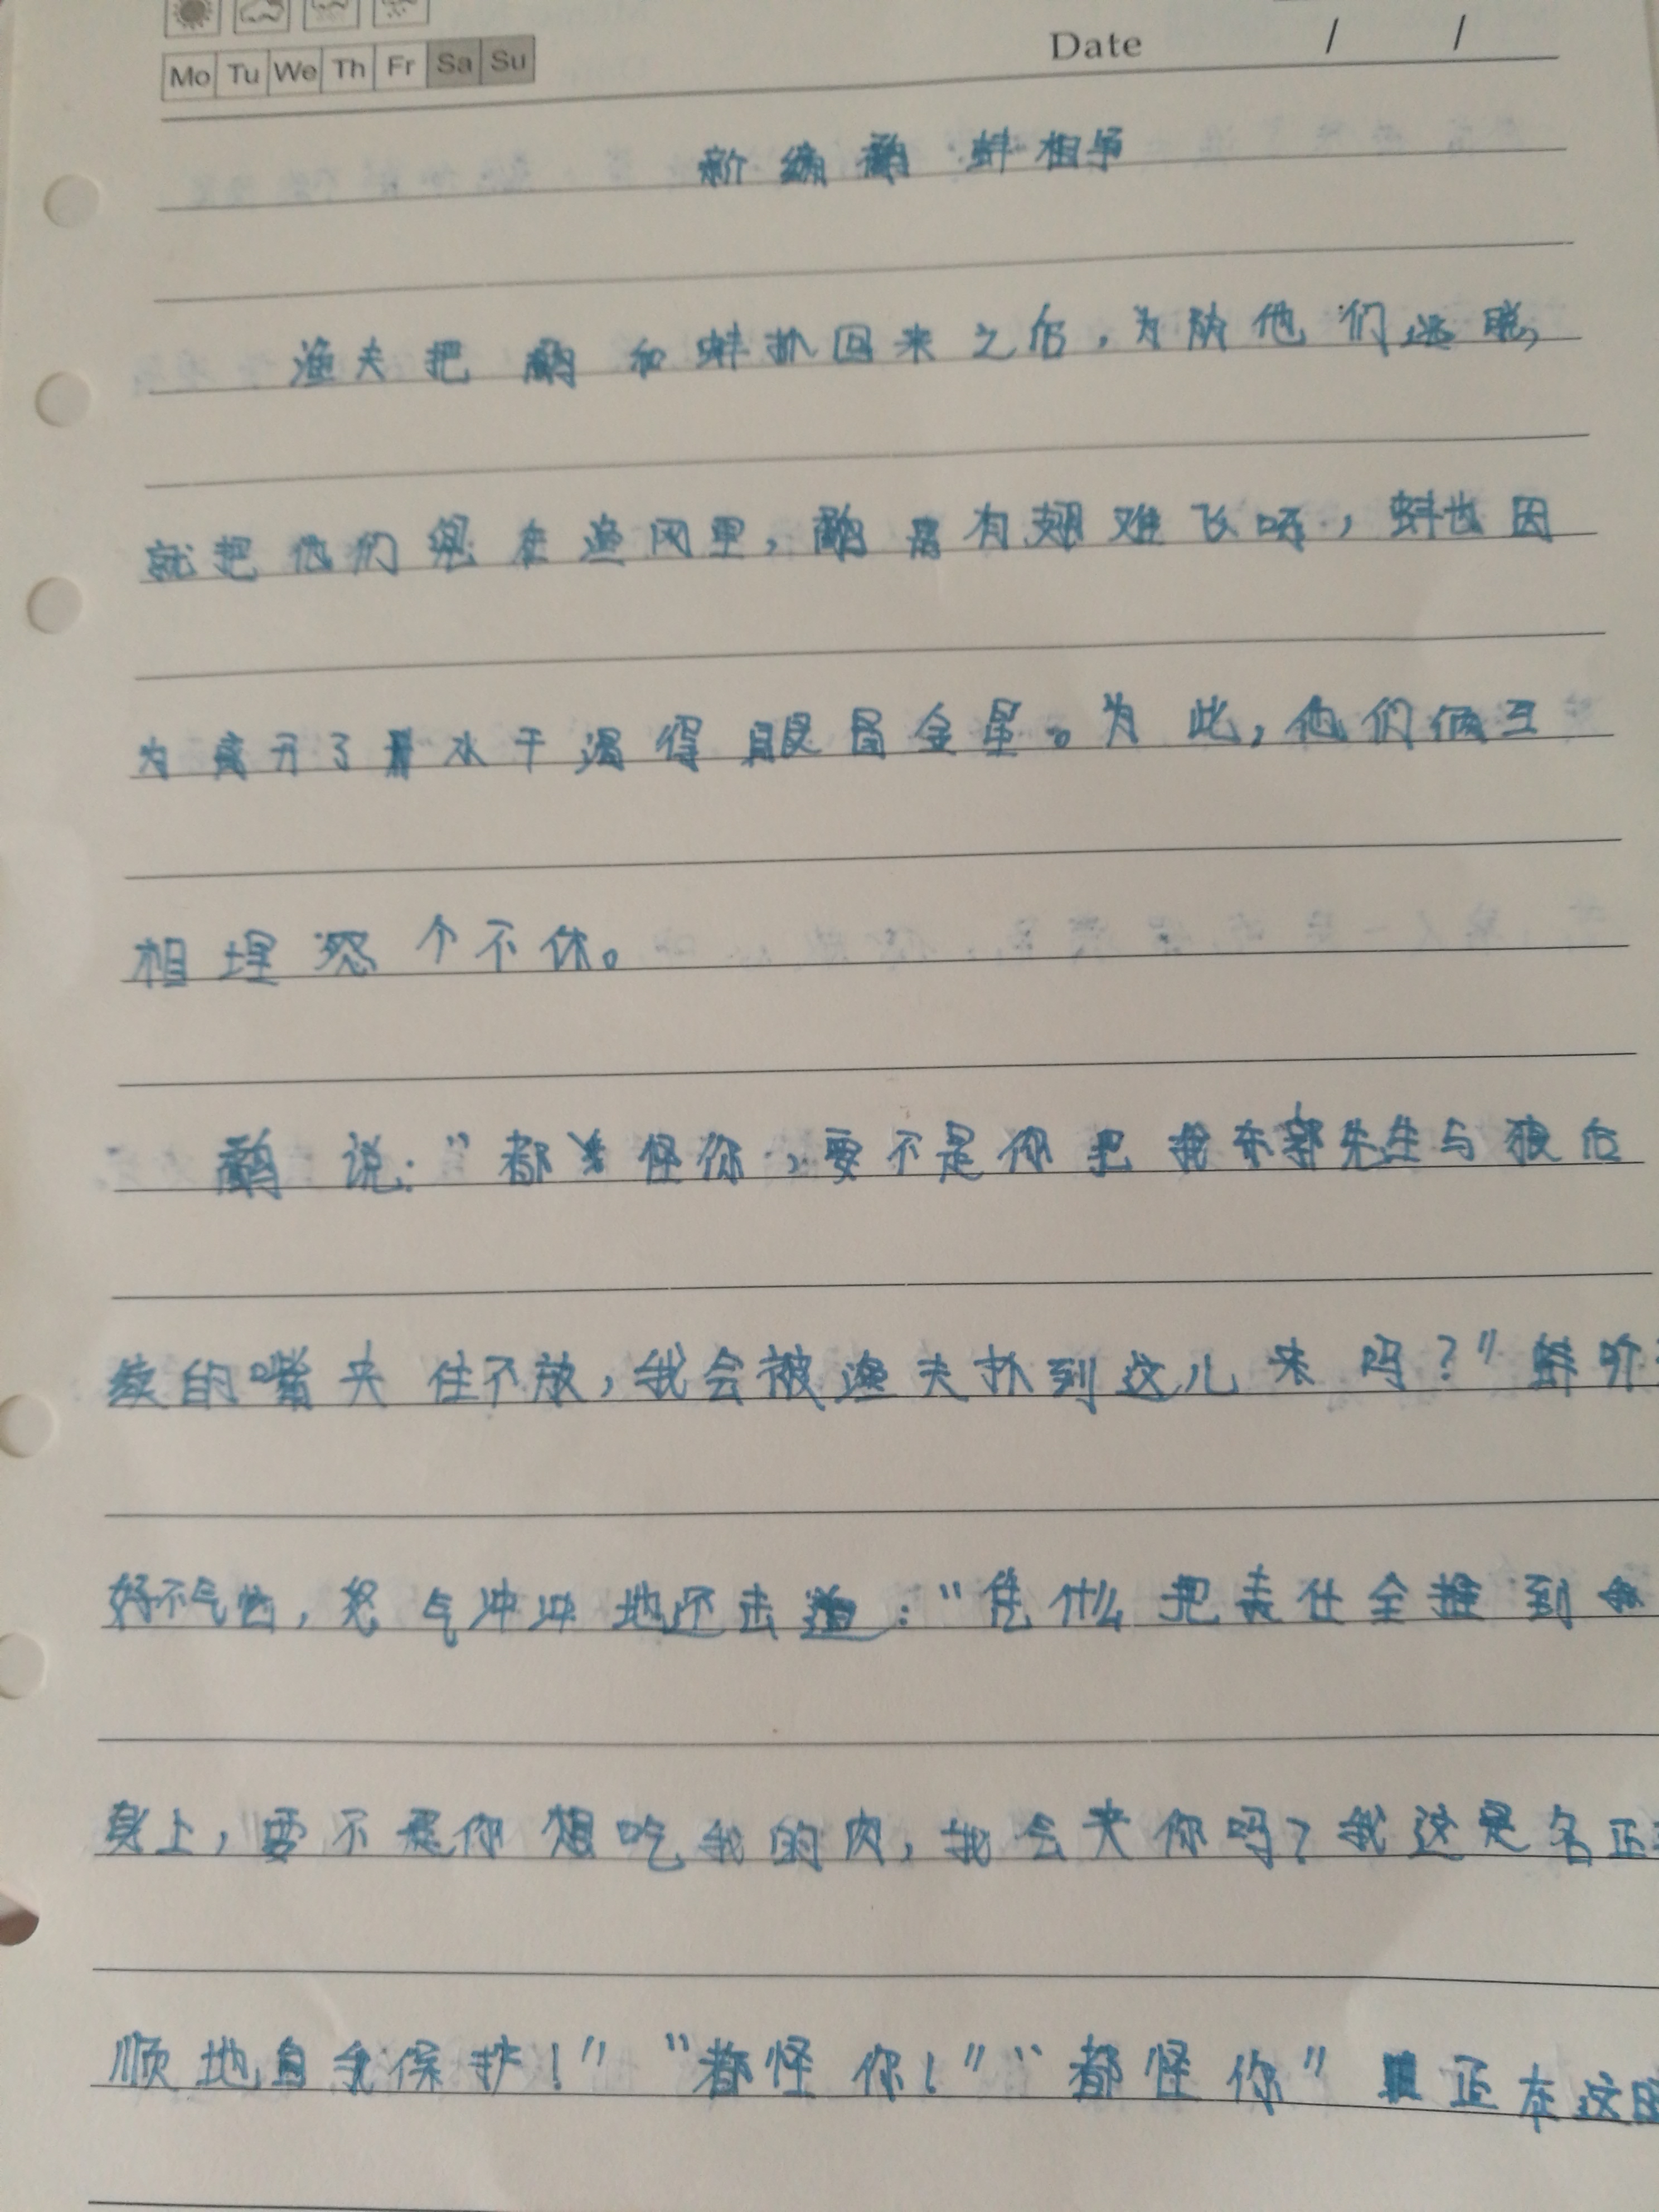 Mo Tu We Th Fr Sa Su
Date / /
新编鹬蚌相争
渔夫把鹬和蚌扒回来之后，为防他们逃脱，
就把他们 在渔网里，鹬是有翅难飞呀，蚌也因
为离开了水干渴得眼冒金星。为此，他们俩互
相埋怨个不休。
鹬说：“都怪你，要不是你把我东郭先生与狼后
续的嘴夹住不放，我会被渔夫扒到这儿来吗？”蚌听
好不气恼，怒气冲冲地还击道：“凭什么把责任全推到我
身上，要不是你想吃我的肉，我会夹你吗？我这是名正
顺地自我保护！”“都怪你！”“都怪你”正在这时